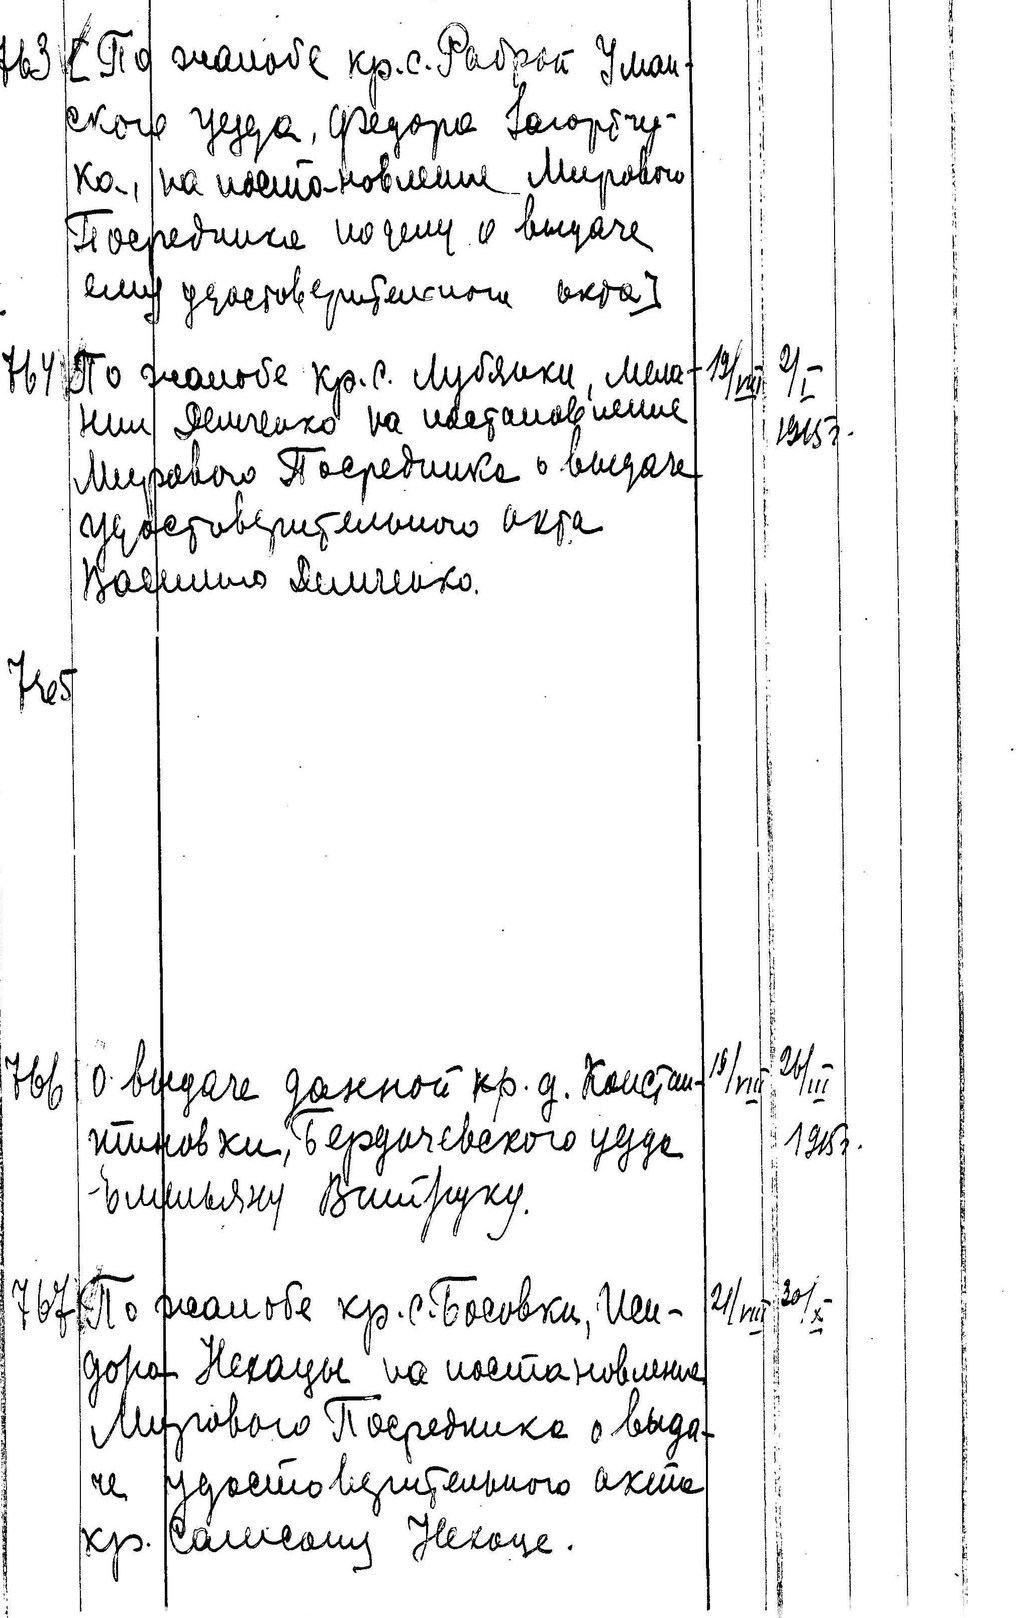 763 [По жалобе кр.с. Раброй Уман-
ского уезда, Федора Загорчу-
ка, на постановление Мирового
Посредника по делу о выдаче
ему удостоверительного акта]
764 По жалобе кр.с. Лубянки, Мела- 19/VIII 2/I
нии Демченко на постановление 1915г.
Мирового Посредника о выдаче
удостоверительного акта
Василию Демченко.
765
766 О выдаче данной кр.д. Констан- 19/VIII 26/III
тиновки, Бердичевского уезда 1915г.
Емельяну Витруку.
767 По жалобе кр.с. Босовки, Иси- 21/VIII 30/X
дора Нехацы на постановление
Мирового Посредника о выда-
че удостоверительного акта
кр. Самсону Нехаце.